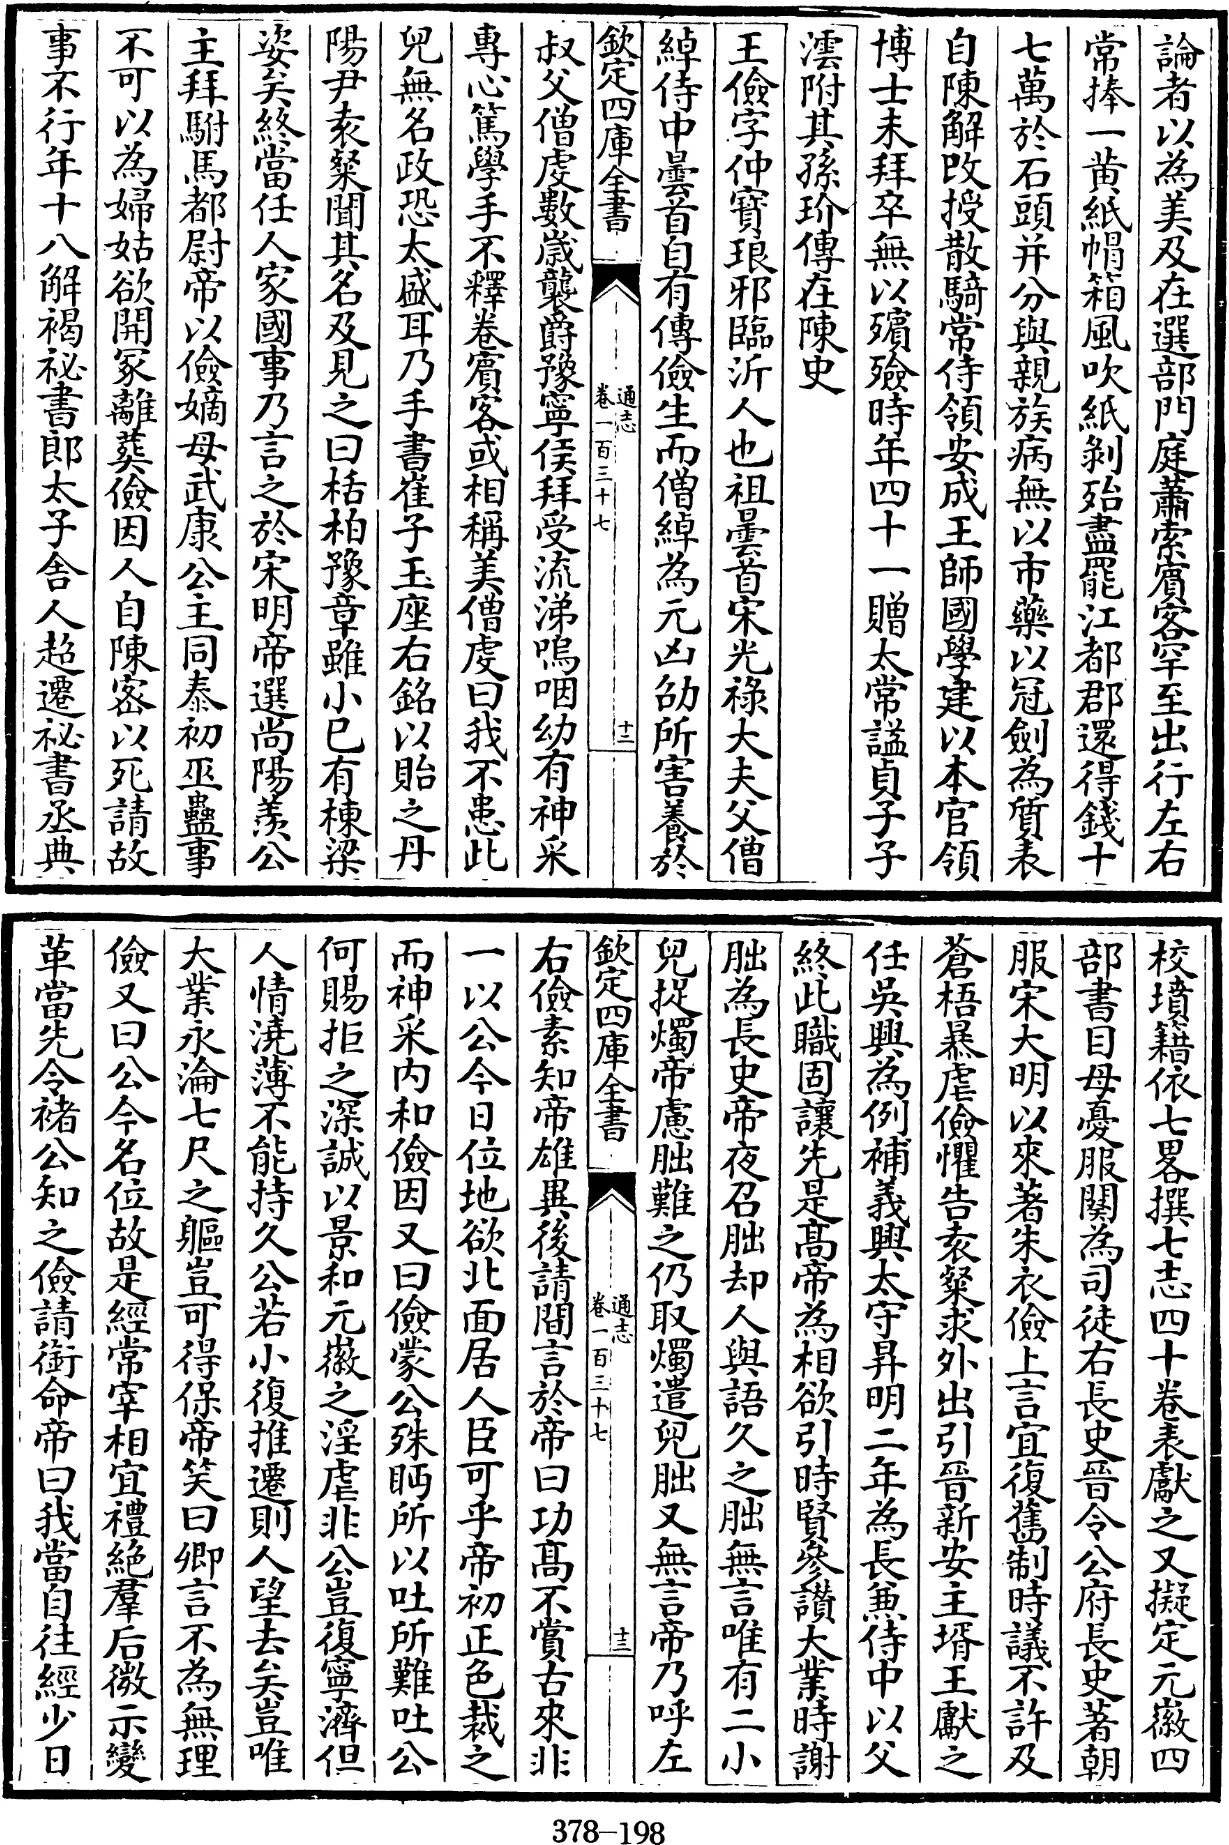 論者以為美及在選部門庭蕭索賓客罕至出行左右
常捧一黄紙帽箱風吹紙剝殆盡罷江都郡還得錢十
七萬於石頭并分與親族病無以市藥以冠劍為質表
自陳解改授散騎常侍領安成王師國學建以本官領
博士未拜卒無以殯殮時年四十一贈太常謚貞子子
澐附其孫玠傳在陳史
王儉字仲寶琅邪臨沂人也祖曇首宋光祿大夫父僧
綽侍中曇首自有傳儉生而僧綽為元凶劭所害養於
欽定四庫全書
通志
卷一百三十七
十二
叔父僧虔數歲襲爵豫寧侯拜受流涕嗚咽幼有神采
專心篤學手不釋卷賓客或相稱美僧虔曰我不患此
兒無名政恐太盛耳乃手書崔子玉座右銘以貽之丹
陽尹袁粲聞其名及見之曰栝柏豫章雖小已有棟梁
姿矣終當任人家國事乃言之於宋明帝選尚陽羨公
主拜駙馬都尉帝以儉嫡母武康公主同泰初巫蠱事
不可以為婦姑欲開冢離葬儉因人自陳宻以死請故
事不行年十八解褐祕書郎太子舎人超遷祕書丞典
校墳籍依七畧撰七志四十卷表獻之又擬定元徽四
部書目母憂服闋為司徒右長史晉令公府長史著朝
服宋大明以來著朱衣儉上言宜復舊制時議不許及
蒼梧暴虐儉懼告袁粲求外出引晉新安主壻王獻之
任吳興為例補義興太守昇明二年為長兼侍中以父
終此職固讓先是髙帝為相欲引時賢參讚大業時謝
朏為長史帝夜召朏却人與語久之朏無言唯有二小
兒捉燭帝慮朏難之仍取燭遣兒朏又無言帝乃呼左
欽定四庫全書
通志
卷一百三十七
十三
右儉素知帝雄異後請間言於帝曰功髙不賞古來非
一以公今日位地欲北面居人臣可乎帝初正色裁之
而神采内和儉因又曰儉蒙公殊眄所以吐所難吐公
何賜拒之深誠以景和元徽之淫虐非公豈復寧濟但
人情澆薄不能持久公若小復推遷則人望去矣豈唯
大業永淪七尺之軀豈可得保帝笑曰卿言不為無理
儉又曰公今名位故是經常宰相宜禮絶羣后微示變
革當先令禇公知之儉請銜命帝曰我當自往經少日
378-198